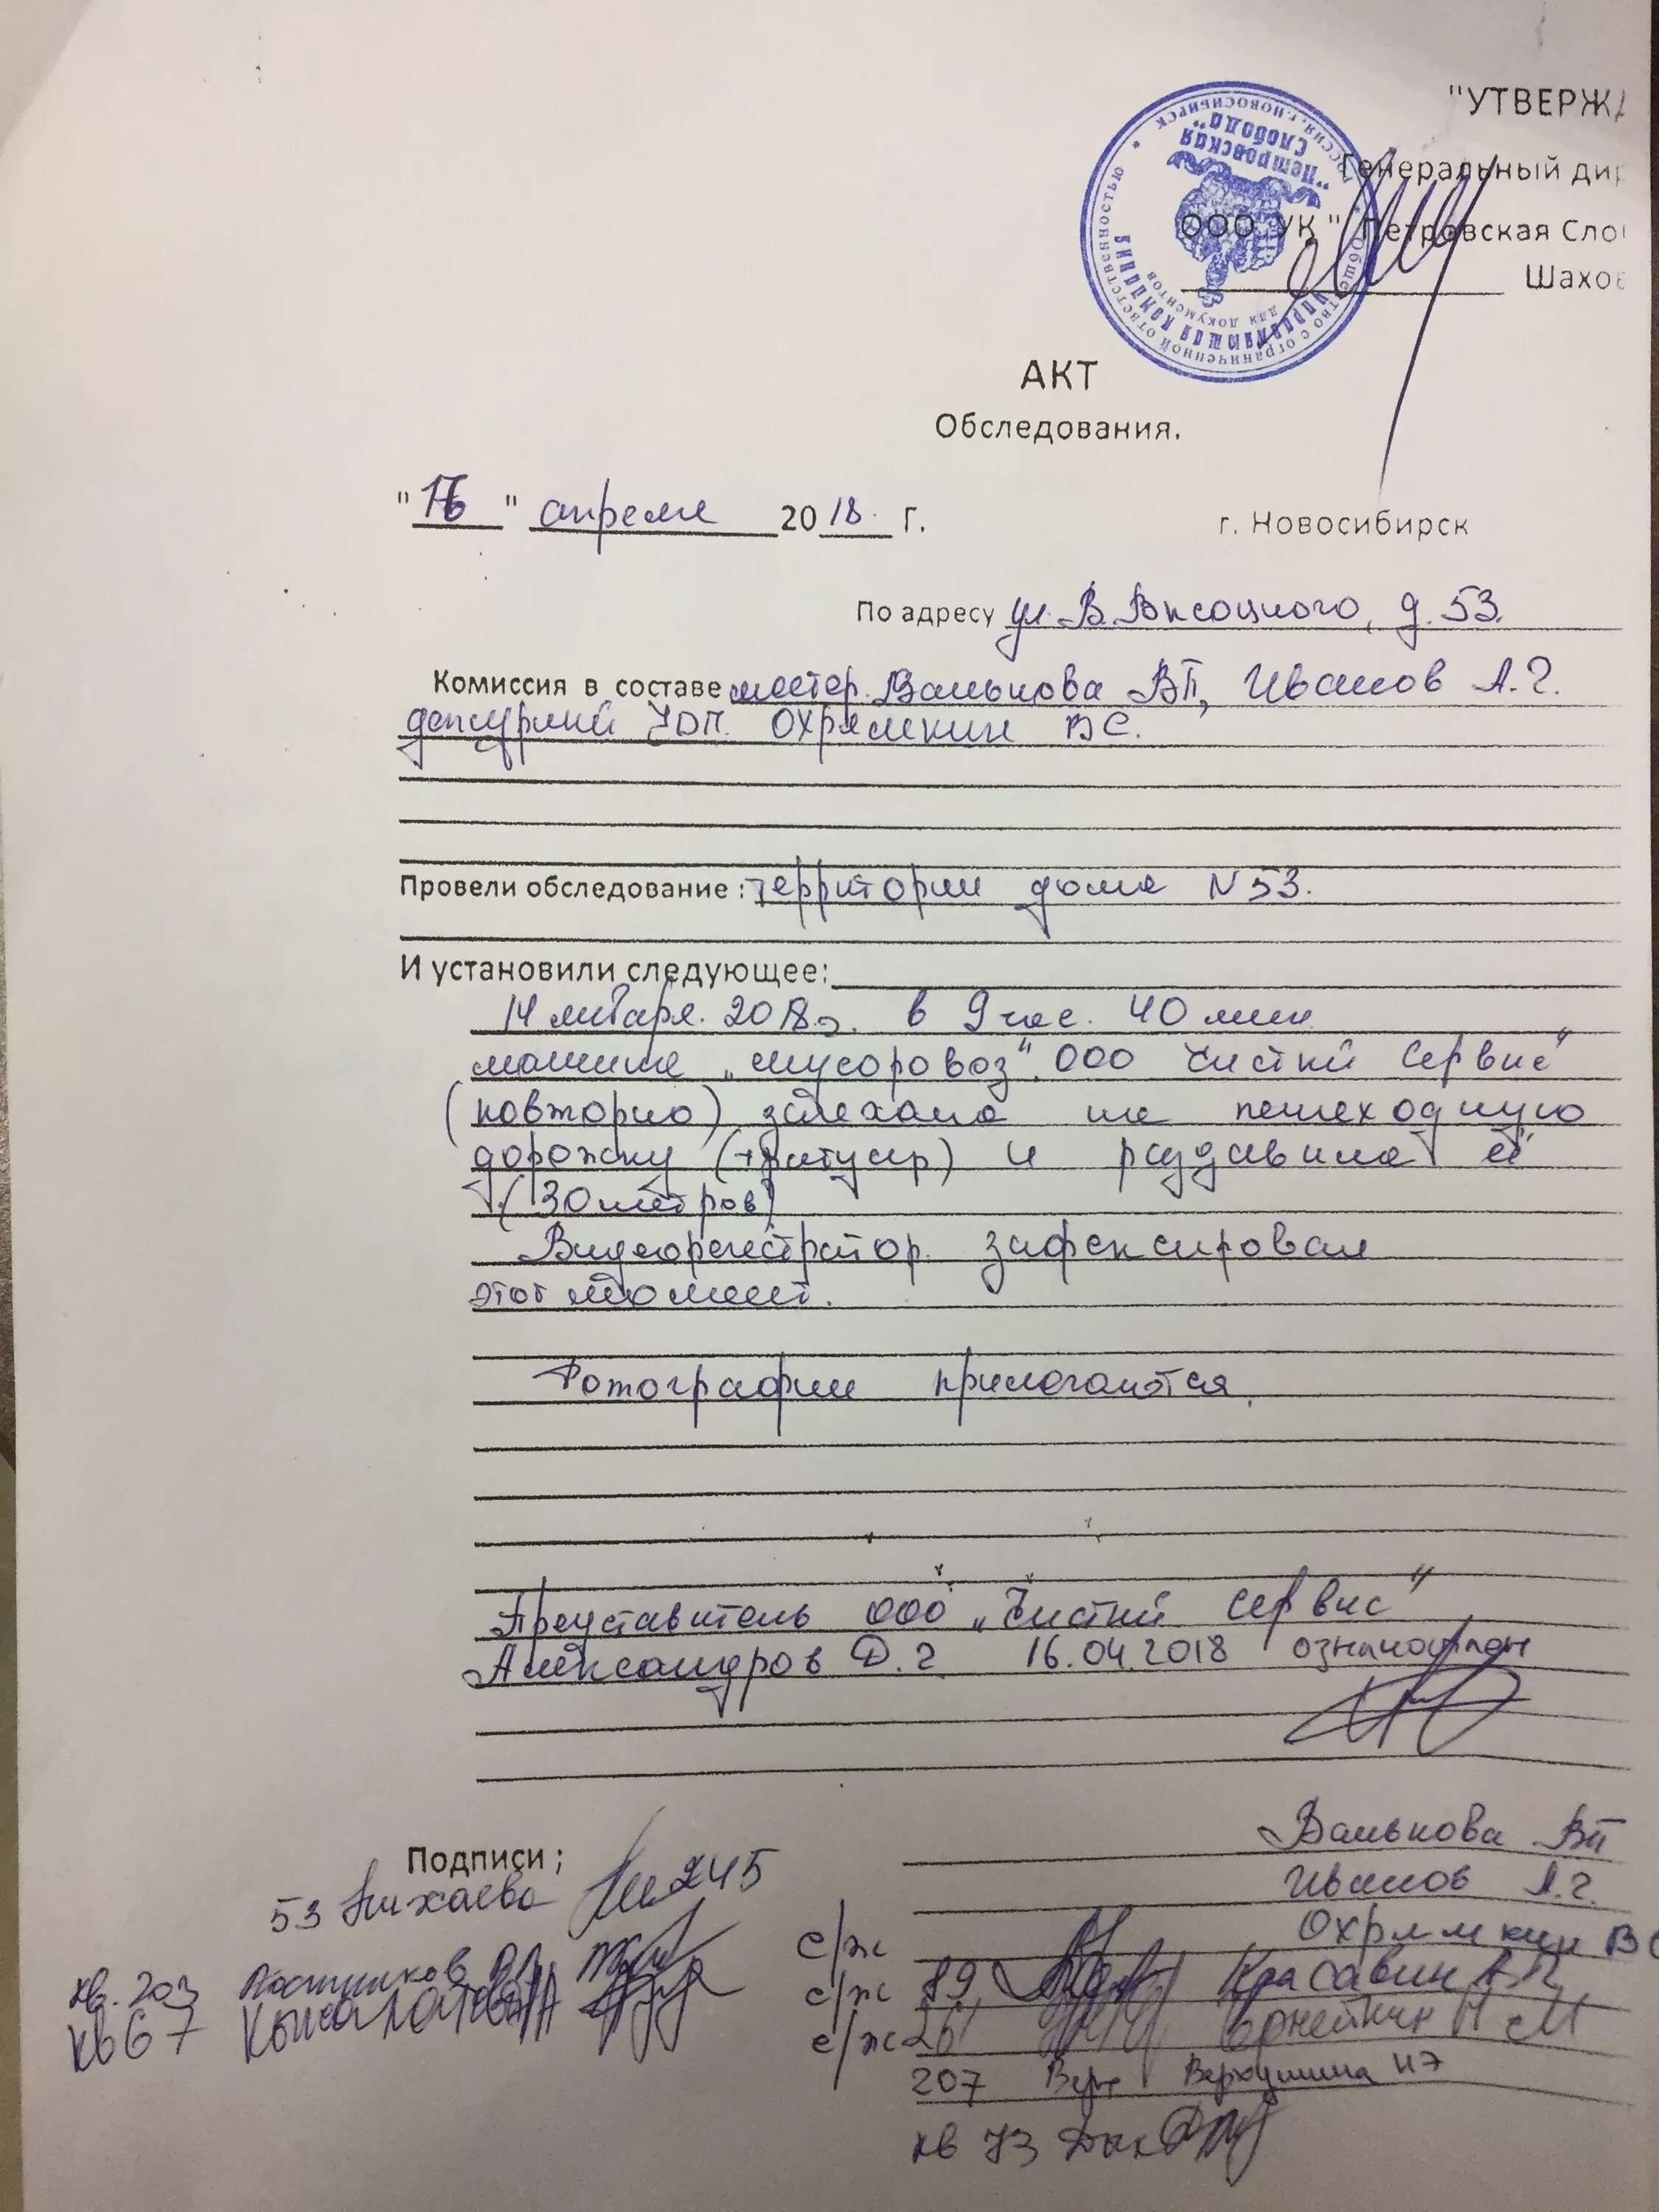 "УТВЕРЖД
Генеральный дир
ООО УК " Петровская Сло
Шахов
Общество с ограниченной ответственностью * Россия, г. Новосибирск *
Управляющая компания
"Петровская Слобода"
для документов
АКТ
Обследования.
"16" апреля 2018 г. г. Новосибирск
По адресу ул. В. Высоцкого, д. 53.
Комиссия в составе мастер. Ванькова ВП, Иванов А.Г.
дежурный УОП. Охрямкин ВС.
Провели обследование : территории дома N 53.
И установили следующее:
14 января. 2018г. в 9 час. 40 мин
машина „мусоровоз". ООО Чистый Сервис"
(повторно) заехала на пешеходную
дорожку (тратуар) и раздавила её
(30 метров)
Видеорегистратор зафексировал
этот момент.
Фотографии прилогаются.
Представитель ООО „Чистый Сервис"
Александров Д.Г. 16.04.2018 ознакомлен
Ванькова ВП
Подписи ;
Иванов А.Г.
53 245
Охрямкин ВС
с/ж
кв. 203 Постников
с/ж 89 Красавин А
кв 67
с/ж 26
207 Верт
кв 73